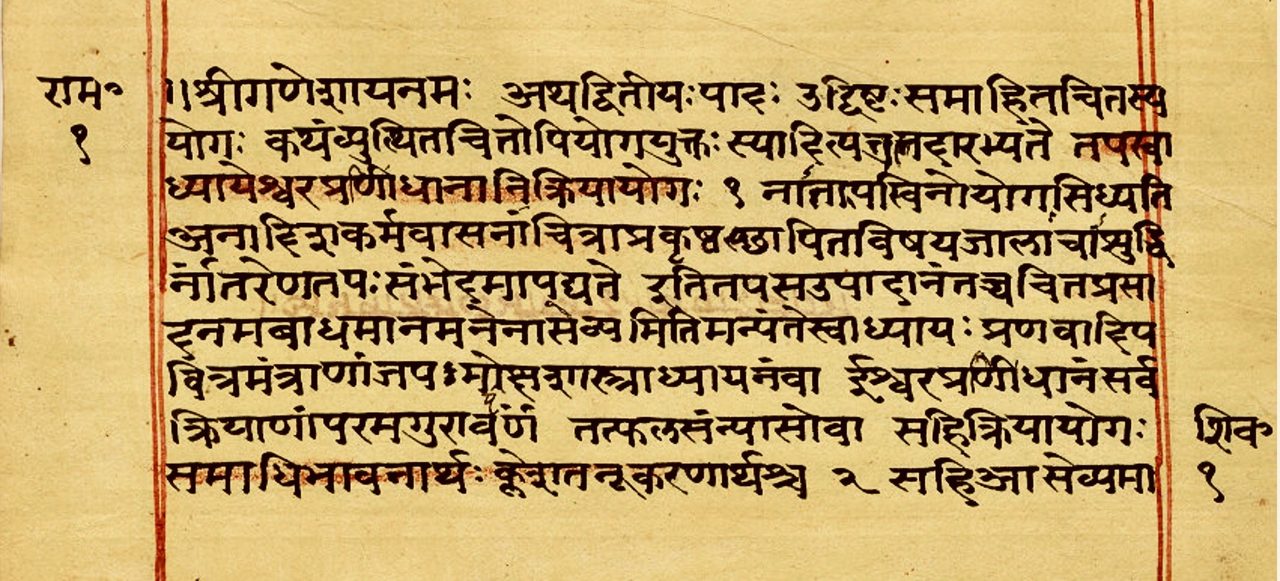 राम॰ ॥श्रीगणेशायनमः अथद्वितीयःपादः उद्दिष्टःसमाहितचितस्य
१ योगः कथंव्युत्थितचित्तोपियोगयुक्तःस्यादित्येत्तत्तदारभ्यते तपस्वा
ध्यायेश्वरप्रणीधानानिक्रियायोगः १ नातापस्विनोयोगःसिध्यति
अनादिशकर्मवासनाचित्राप्रकृ पितविषयजालाचाशुद्धि
र्नांतरेणतपःसंभेदमापद्यते इतितपसउपादानंतच्चचितप्रसा
दनमबाधमानमनेनासेव्यमितिमन्यंतेस्वाध्यायः प्रणवादिप
वित्रमंत्राणांजपःमोक्षशास्त्राध्यायनंवा ईश्वरप्रणीधानंसर्व
क्रियाणांपरमगुरावर्पणं तत्फलसंन्यासोवा सहिक्रियायोगः शिव॰
समाधिभावनार्थः क्लेशतनूकरणार्थश्च २ सहिआसेव्यमा १